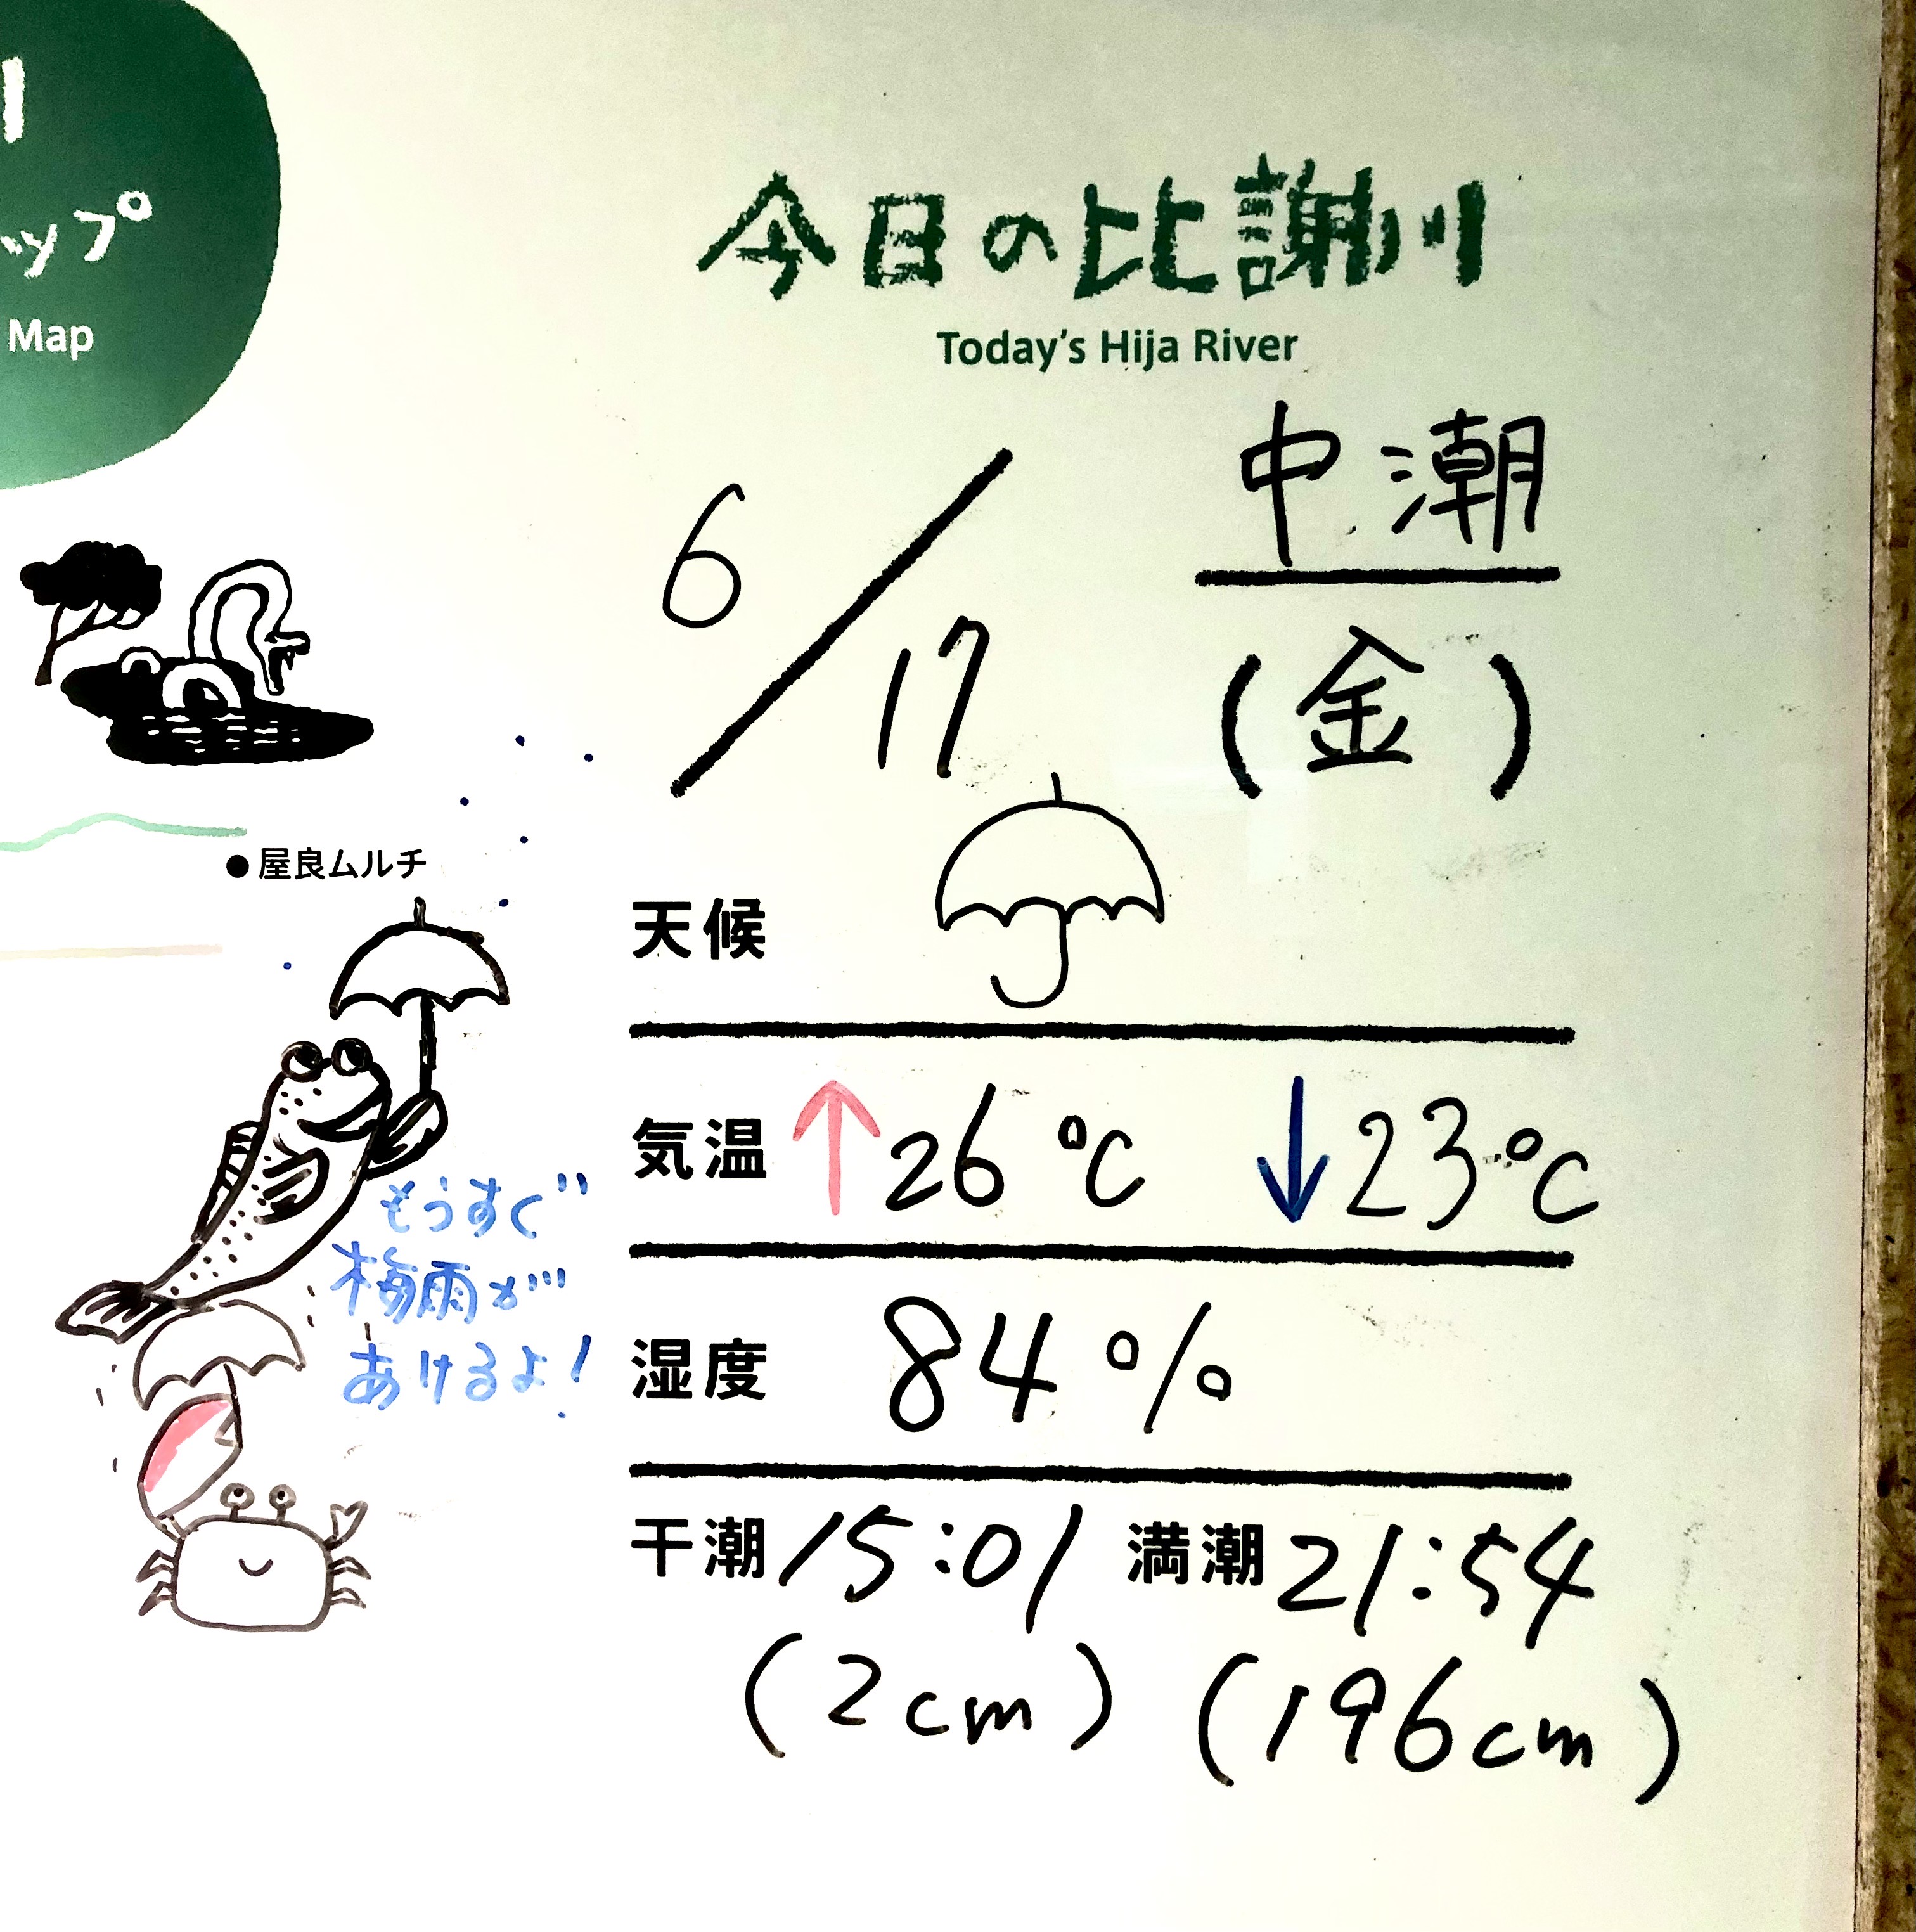 ップ
Map
今日の比謝川
Today's Hija River
中潮
6/17
(金)
●屋良ムルチ
天候
気温 ↑26℃ ↓23℃
もうすぐ
梅雨が
あけるよ!
湿度 84%
干潮 15:01 満潮 21:54
(2cm) (196cm)